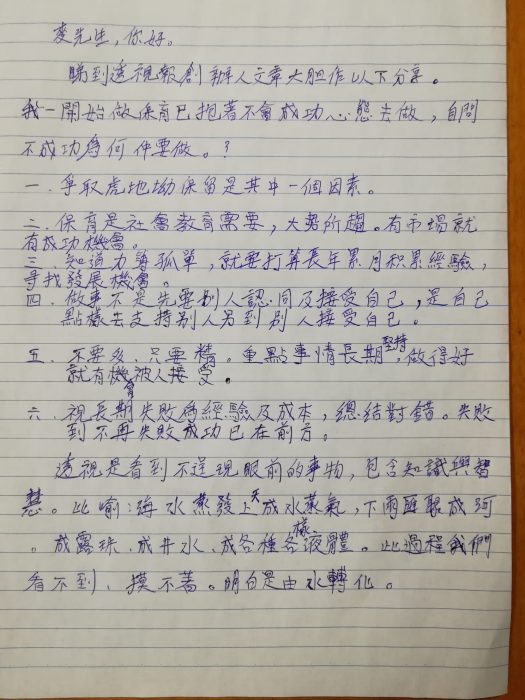 麥先生，你好。
睇到透視報創辦人文章大胆作以下分享。
我一開始做保育已抱著不會成功心態去做，自問
不成功為何仲要做。？
一．爭取虎地坳保留是其中一個因素。
二．保育是社會教育需要，大勢所趨。有市場就
有成功機會。
三．知道力爭孤單，就要打算長年累月积累經驗，
尋找發展機會。
四．做事不是先要別人認同及接受自己，是自己
點樣去支持別人另到別人接受自己。
五．不要多，只要精。重點事情長期堅持，做得好
就有機會被人接受。
六．視長期失敗為經驗及成本，總結對錯。失敗
到不再失敗成功已在前方。
透視是看到不呈現眼前的事物，包含知識與智
慧。比喻：海水蒸發上天成水蒸氣，下雨匯聚成河
。成露珠、成井水、成各種各樣液體。此過程我們
看不到、摸不著。明白是由水轉化。